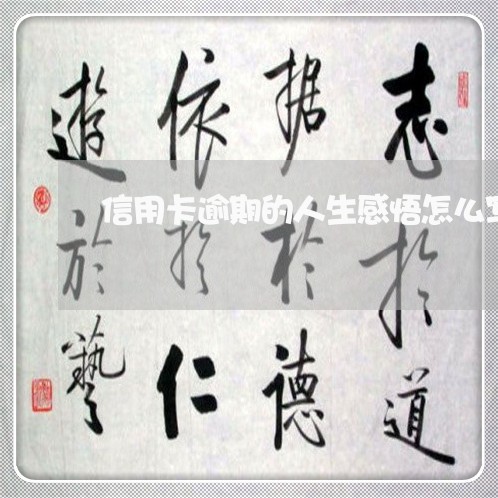 志於道
据於德
依於仁
遊於藝
信用卡逾期的人生感悟怎么